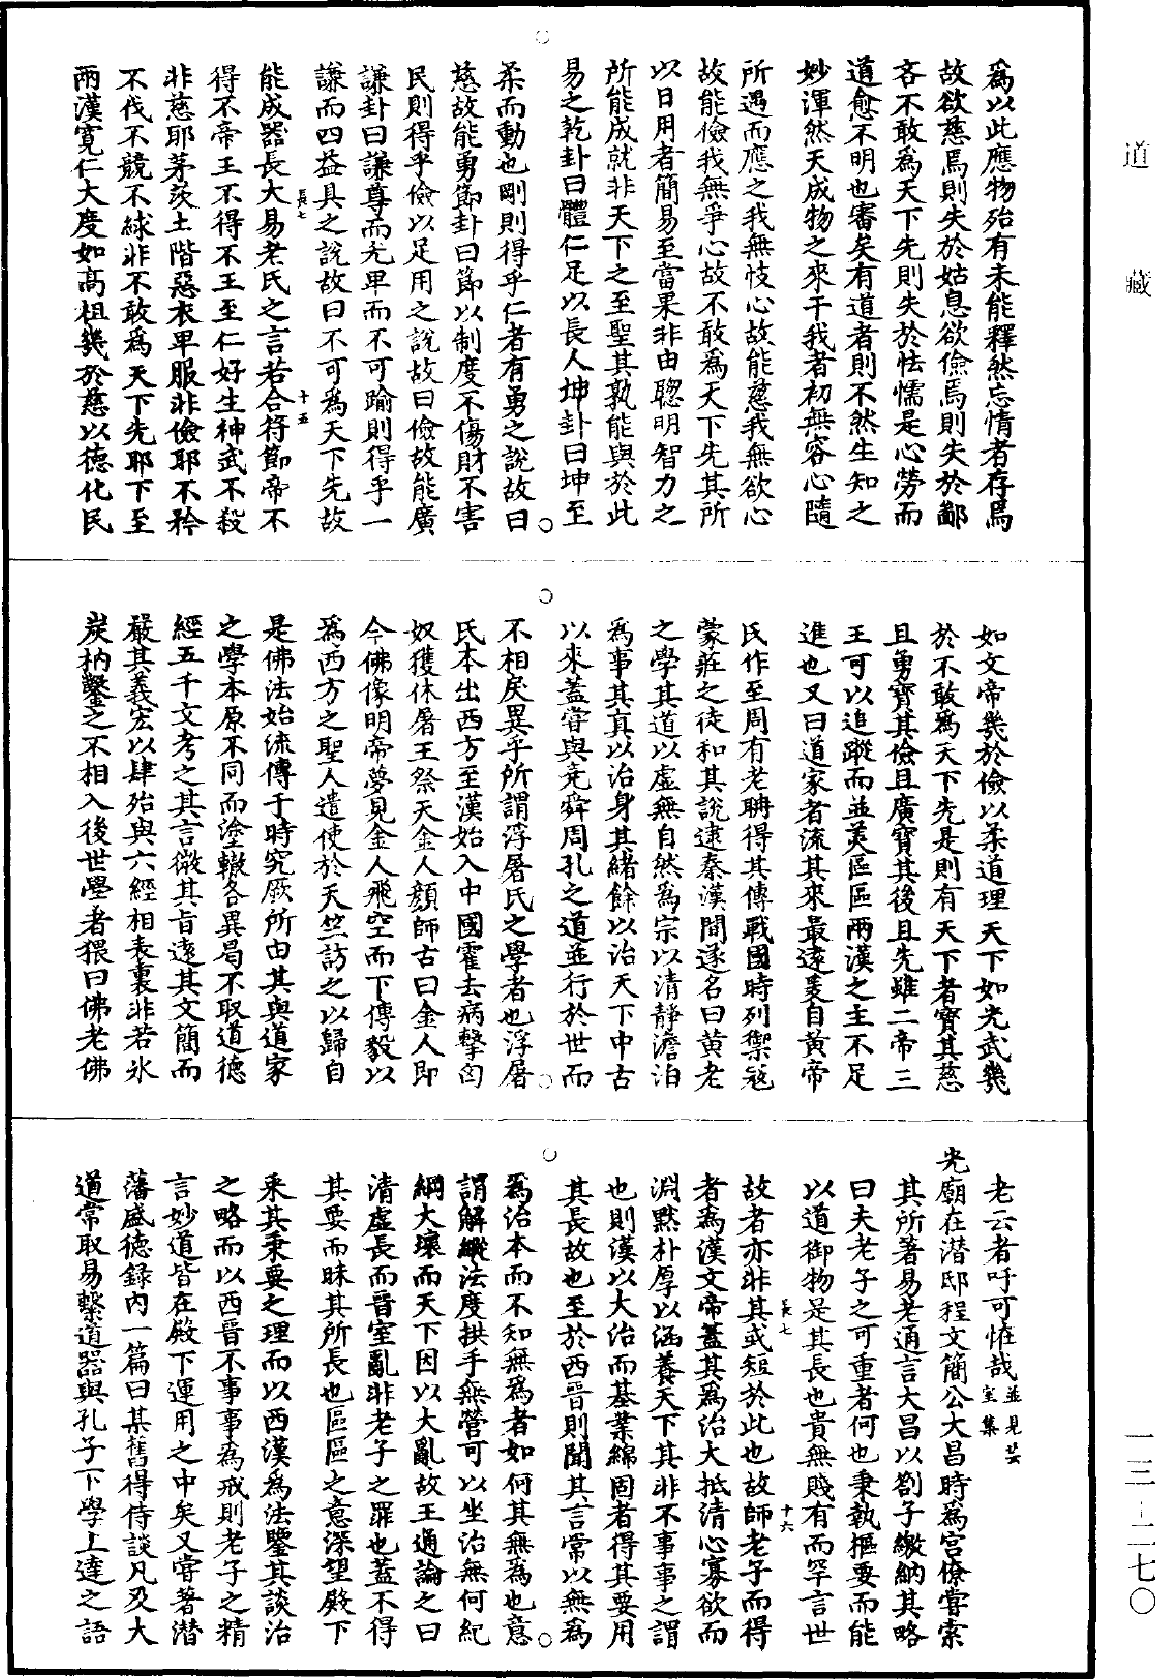 道藏
為以此應物殆有未能釋然忘情者存焉
故欲慈焉則失於姑息欲儉焉則失於鄙
吝不敢為天下先則失於怯懦是心勞而
道愈不明也審矣有道者則不然生知之
妙渾然天成物之來干我者初無容心隨
所遇而應之我無忮心故能慈我無欲心
故能儉我無爭心故不敢為天下先其所
以日用者簡易至當果非由聰明智力之
所能成就非天下之至聖其孰能與於此
易之乾卦曰體仁足以長人坤卦曰坤至
柔而動也剛則得乎仁者有勇之說故曰
慈故能勇節卦曰節以制度不傷財不害
民則得乎儉以足用之說故曰儉故能廣
謙卦曰謙尊而光卑而不可踰則得乎一
謙而四益具之說故曰不可為天下先故
長七 十五
能成器長大易老氏之言若合符節帝不
得不帝王不得不王至仁好生神武不殺
非慈耶茅茨土階惡衣卑服非儉耶不矜
不伐不競不絿非不敢為天下先耶下至
兩漢寬仁大度如高祖幾於慈以德化民
如文帝幾於儉以柔道理天下如光武幾
於不敢為天下先是則有天下者寶其慈
且勇寶其儉且廣寶其後且先雖二帝三
王可以追蹤而並美區區兩漢之主不足
進也又曰道家者流其來最遠爰自黃帝
氏作至周有老聃得其傳戰國時列禦寇
蒙莊之徒和其說逮秦漢間遂名曰黃老
之學其道以虛無自然為宗以清靜澹泊
為事其真以治身其緒餘以治天下中古
以來蓋嘗與堯舜周孔之道並行於世而
不相戾異乎所謂浮屠氏之學者也浮屠
氏本出西方至漢始入中國霍去病擊匈
奴獲休屠王祭天金人顏師古曰金人即
今佛像明帝夢見金人飛空而下傅毅以
為西方之聖人遣使於天竺訪之以歸自
是佛法始流傳于時究厥所由其與道家
之學本原不同而塗轍各異曷不取道德
經五千文考之其言微其旨遠其文簡而
嚴其義宏以肆殆與六經相表裏非若氷
炭枘鑿之不相入後世學者猥曰佛老佛
老云者吁可怪哉並見芸室集
光廟在潛邸程文簡公大昌時為宮僚嘗索
其所著易老通言大昌以劄子繳納其略
曰夫老子之可重者何也秉執樞要而能
以道御物是其長也貴無賤有而罕言世
故者亦非其或短於此也故師老子而得
長七 十六
者為漢文帝蓋其為治大抵清心寡欲而
淵默朴厚以涵養天下其非不事事之謂
也則漢以大治而基業綿固者得其要用
其長故也至於西晉則聞其言常以無為
為治本而不知無為者如何其無為也意
謂解縱法度拱手無營可以坐治無何紀
綱大壞而天下因以大亂故王通論之曰
清虛長而晉室亂非老子之罪也蓋不得
其要而昧其所長也區區之意深望殿下
采其秉要之理而以西漢為法鑒其談治
之略而以西晉不事事為戒則老子之精
言妙道皆在殿下運用之中矣又嘗著潛
藩盛德錄內一篇曰某舊得侍談凡及大
道常取易繫道器與孔子下學上達之語
一三—二七〇